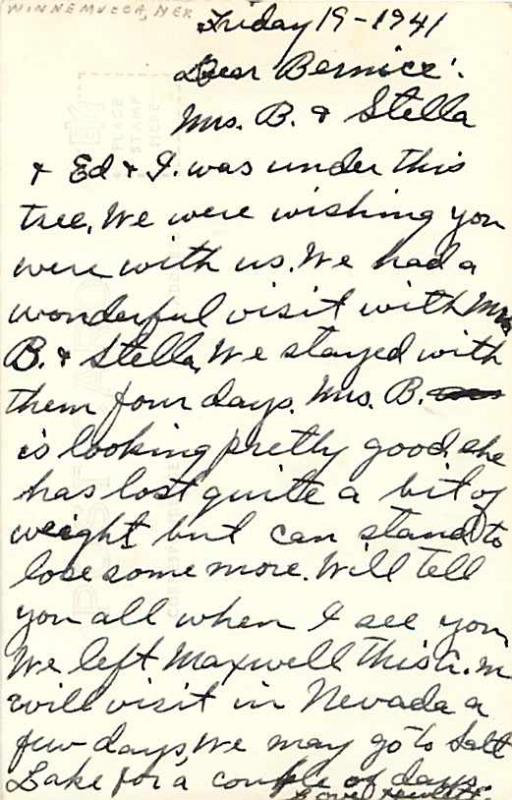 WINNEMUCCA, NEV.
Friday 19-1941
Dear Bernice:
Mrs. B. & Stella
& Ed & I. was under this
tree. We were wishing you
were with us. We had a
wonderful visit with Mrs
B. & Stella, We stayed with
them four days. Mrs. B.
is looking pretty good, she
has lost quite a bit of
weight but can stand to
lose some more. Will tell
you all when I see you
We left Maxwell this a.m
will visit in Nevada a
few days, We may go to Salt
Lake for a couple of days.
Love
PLACE
STAMP
HERE
POST CARD